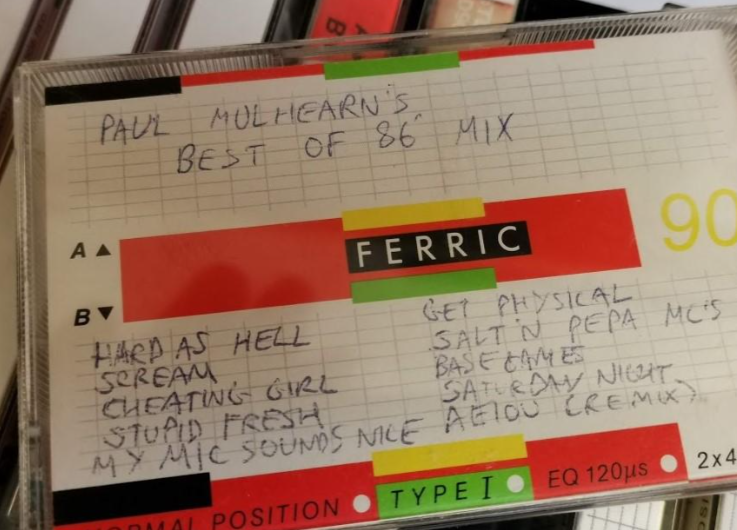 PAUL MULHEARN'S
BEST OF 86 MIX
A ▲
FERRIC
90
B ▼
HARD AS HELL
SCREAM
CHEATING GIRL
STUPID FRESH
MY MIC SOUNDS NICE
GET PHYSICAL
SALT 'N PEPA MC'S
BASE GAMES
SATURDAY NIGHT
AEIOU (REMIX)
ORMAL POSITION
TYPE I
EQ 120µs
2x4